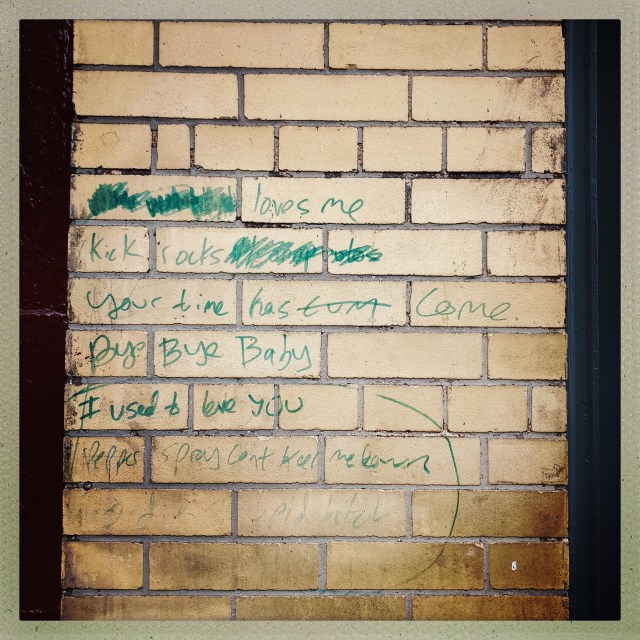 loves me
Kick rocks
your time has come.
Bye Bye Baby
I used to love you
Pepper spray cant keep me down
bitch